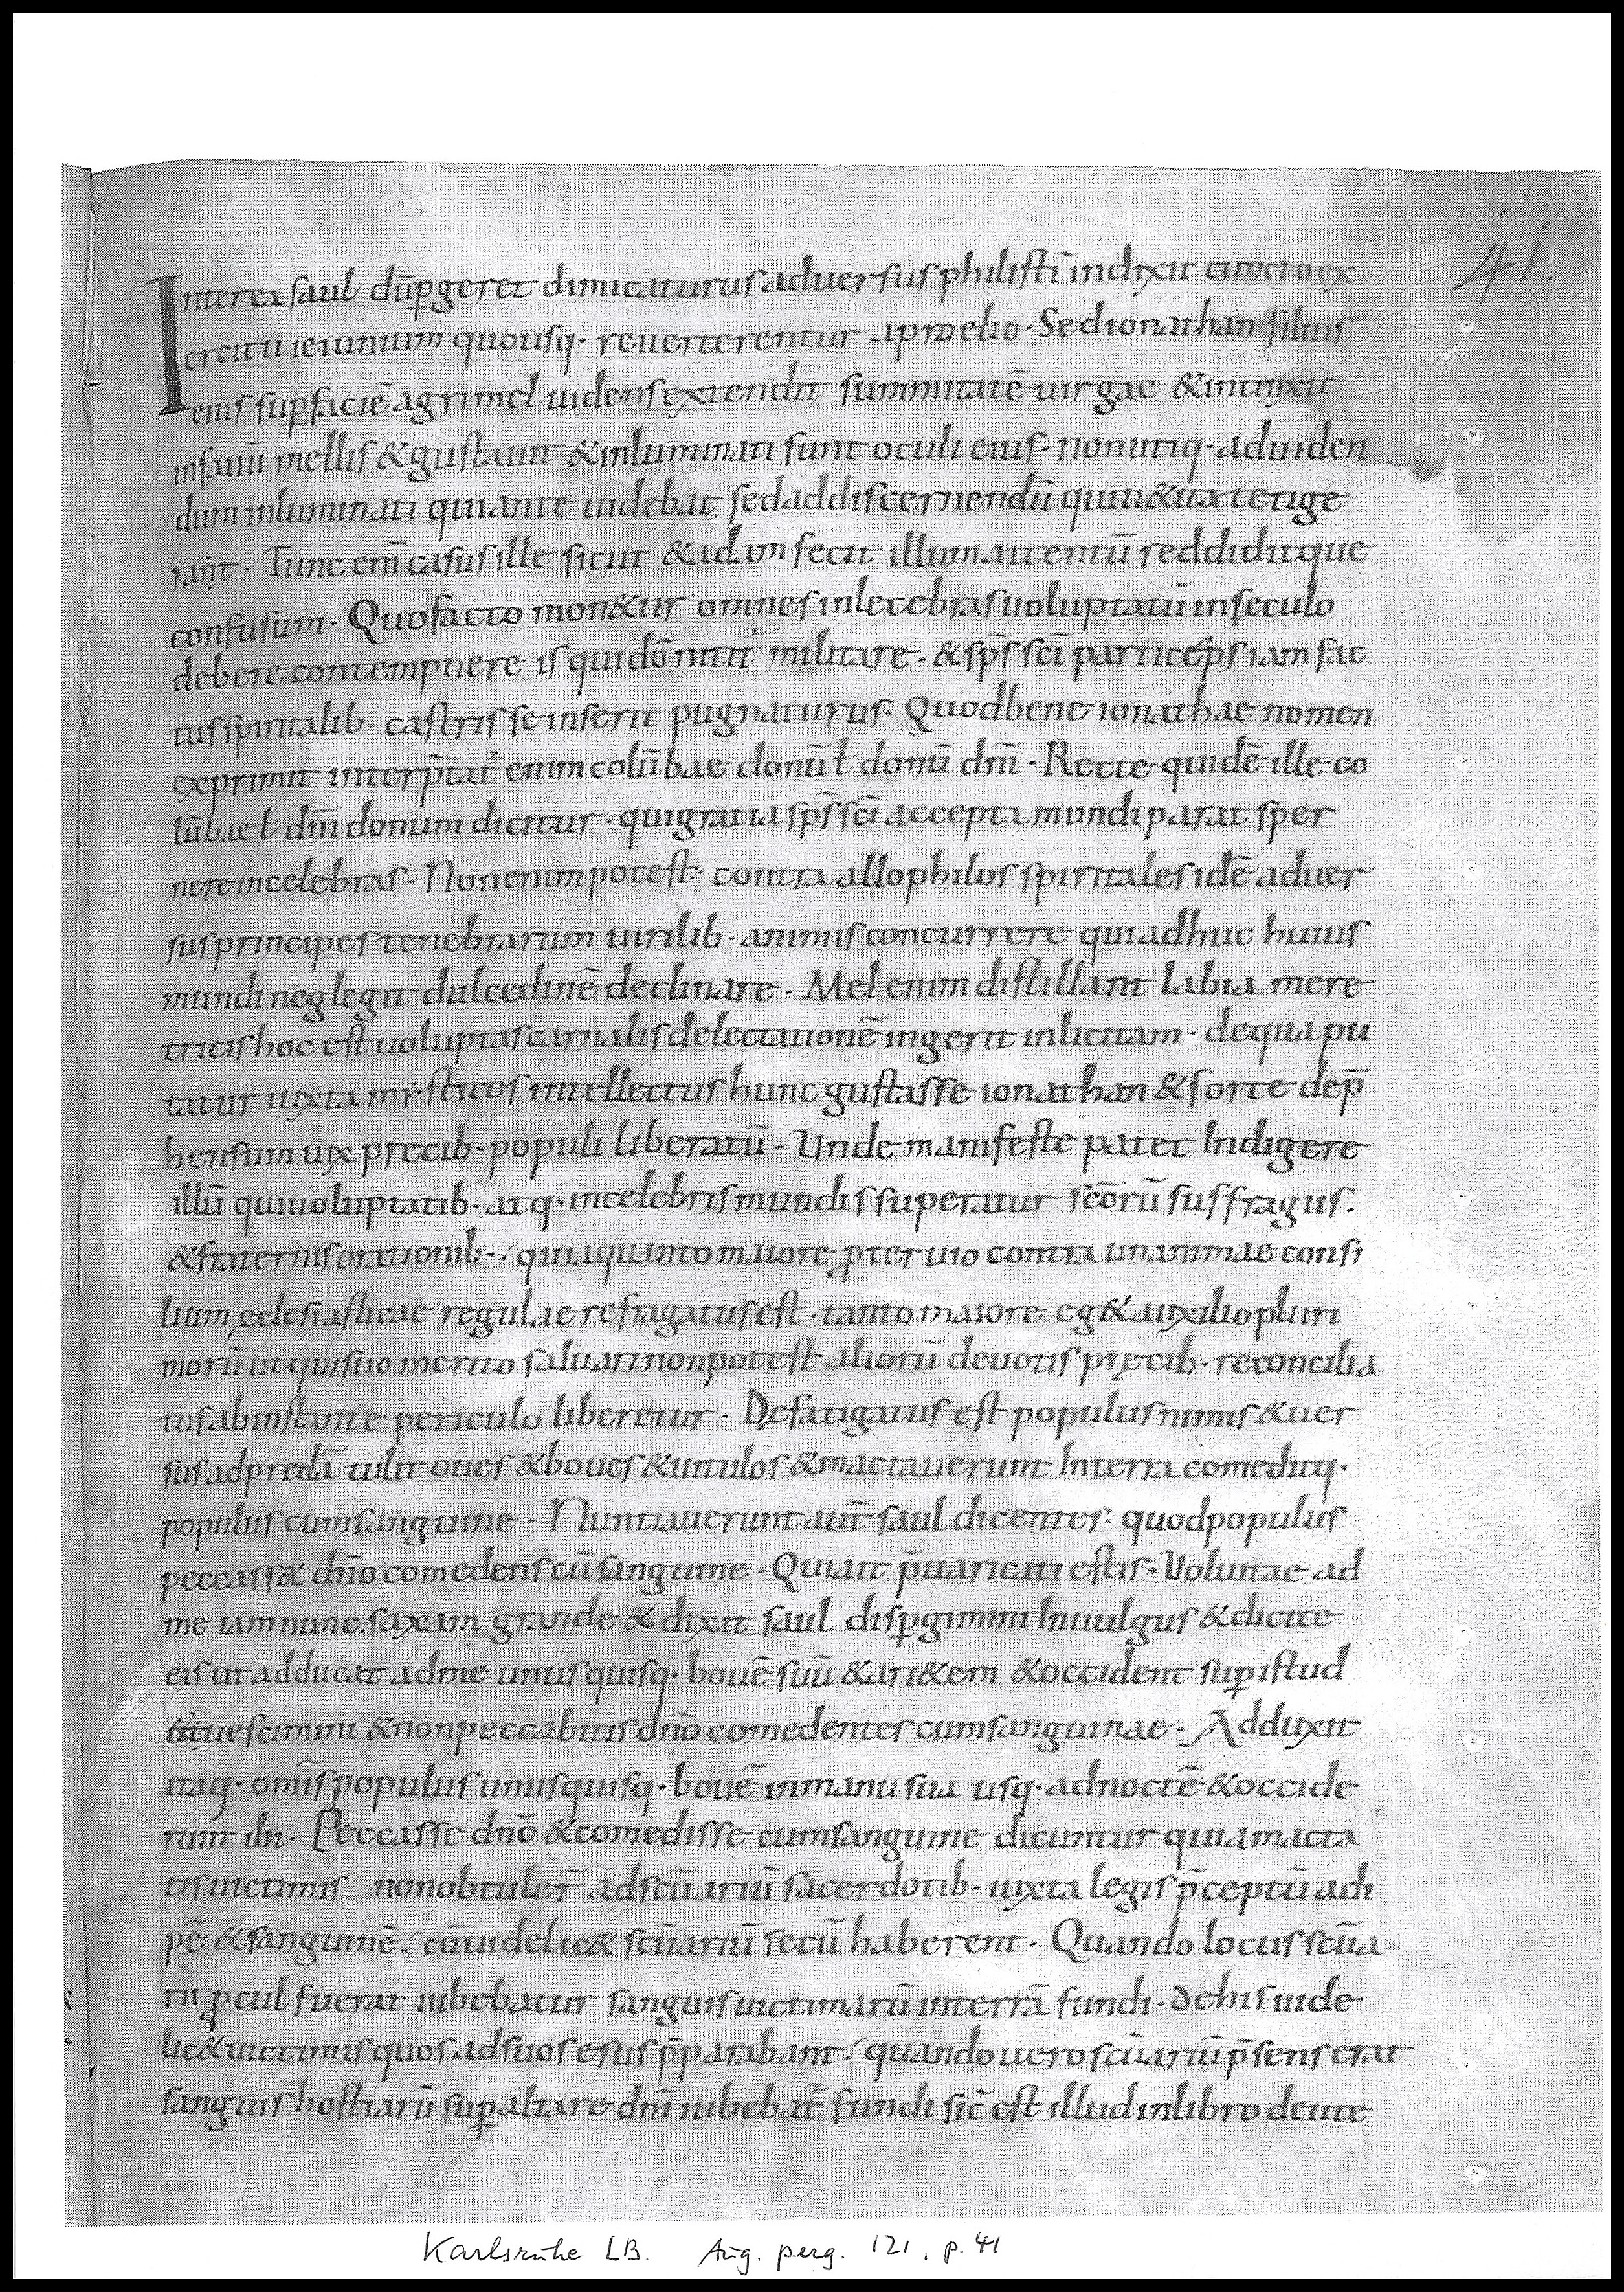 41
Interea saul dūp̱geret dimicaturus aduersus philistī indixit cuncto ex
ercitu ieiunium quousq· reuerterentur a proelio · Sed ionathan filius
eius sup̱faciē agri mel uidens extendit summitatē uirgae & intinxit
in fauū mellis & gustauit & inluminati sunt oculi eius · non utiq· ad uiden
dum inluminati qui ante uidebat. sed ad discernendū qui uetita tetige
rant · Tunc eni casus ille sicut & adam fecit illum attentū reddiditque
confusum · Quo facto mon&ur omnes inlecebras uoluptatū in seculo
debere contempnere is qui dō nititˀ militare · & sp̄s sc̄i particeps iam fac
tus spiritalib· castris se inserit pugnaturus · Quod bene ionathae nomen
exprimit interp̄tatˀ enim colūbae donū ł donū dn̄i · Recte quidē ille co
lūbae ł dn̄i donum dicitur · qui gratia sp̄s sc̄i accepta mundi parat sper
nere incelebras · Non enim potest contra allophilos spiritales idē aduer
sus principes tenebrarum uirilib· animis concurrere qui adhuc huius
mundi neglegit dulcedinē declinare · Mel enim distillant labia mere
tricis hoc est uoluptas carnalis delectationē ingerit inlicitam · de qua pu
tatur iuxta mysticos intellectus hunc gustasse ionathan & sorte dep̄
hensum uix precib· populi liberatū · Unde manifeste patet Indigere
illū qui uoluptatib· atq· incelebris mundi superatur sc̄orū suffragiis.
& fraternis orationib·. quia quanto maiore p̱teruio contra unanimae consi
lium ęclesiasticae regulae refragatus est · tanto maiore eg& auxilio pluri
morū ut qui suo merito saluari non potest aliorū deuotis pręcib· reconcilia
tus ab instante periculo liberetur · Defatigatus est populus nimis & uer
sus ad predā tulit oues & boues & uitulos & mactauerunt In terra comeditq·
populus cum sanguine · Nuntiauerunt aut̄ saul dicentes: quod populus
peccass& dn̄o comedens cū sanguine · Qui ait p̄uaricati estis · Voluitae ad
me iam nunc saxam grande & dixit saul disp̱gimini In uulgus & dicite
eis ut adducat ad me unus quisq· bouē suū & ari&em & occident sup̱ istud
& uescimini & non peccabitis dn̄o comedentes cum sanguinae · Adduxit
itaq· omīs populus unusquisq· bouē in manu sua usq· ad noctē & occide
runt ibi · Peccasse dn̄o & comedisse cum sanguine dicuntur quia macta
tis uictimis non obtuler̄ ad scūariū sacerdotib· iuxta legis p̄ceptū adi
pē & sanguinē. cū uidelic& scūariū secū haberent · Quando locus scūa
rii p̱cul fuerat iubebatur sanguis uictimarū in terrā fundi · de his uide
lic& uictimis quos ad suos esus p̄parabant. quando uero scūariū p̄sens erat
sanguis hostiarū sup̱ altare dn̄i iubebatˀ fundi sic̄ est illud in libro deute
Karlsruhe LB. Aug. perg. 121, p. 41